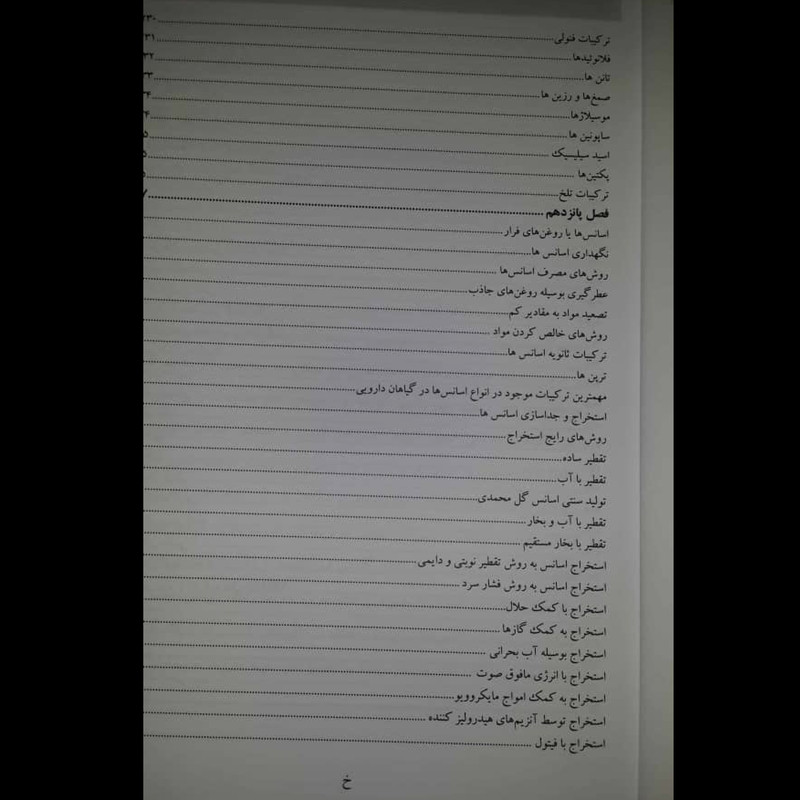 ترکیبات فنولی
فلانوئیدها
تانن ها
صمغ‌ها و رزین ها
موسیلاژها
ساپونین ها
اسید سیلیسیک
پکتین‌ها
ترکیبات تلخ
فصل پانزدهم
اسانس‌ها یا روغن‌های فرار
نگهداری اسانس ها
روش‌های مصرف اسانس‌ها
عطرگیری بوسیله روغن‌های جاذب
تصعید مواد به مقادیر کم
روش‌های خالص کردن مواد
ترکیبات ثانویه اسانس ها
ترپن ها
مهمترین ترکیبات موجود در انواع اسانس‌ها در گیاهان دارویی
استخراج و جداسازی اسانس ها
روش‌های رایج استخراج
تقطیر ساده
تقطیر با آب
تولید سنتی اسانس گل محمدی
تقطیر با آب و بخار
تقطیر با بخار مستقیم
استخراج اسانس به روش تقطیر نوبتی و دایمی
استخراج اسانس به روش فشار سرد
استخراج با کمک حلال
استخراج به کمک گازها
استخراج بوسیله آب بحرانی
استخراج با انرژی مافوق صوت
استخراج به کمک امواج مایکروویو
استخراج توسط آنزیم‌های هیدرولیز کننده
استخراج با فیتول
خ